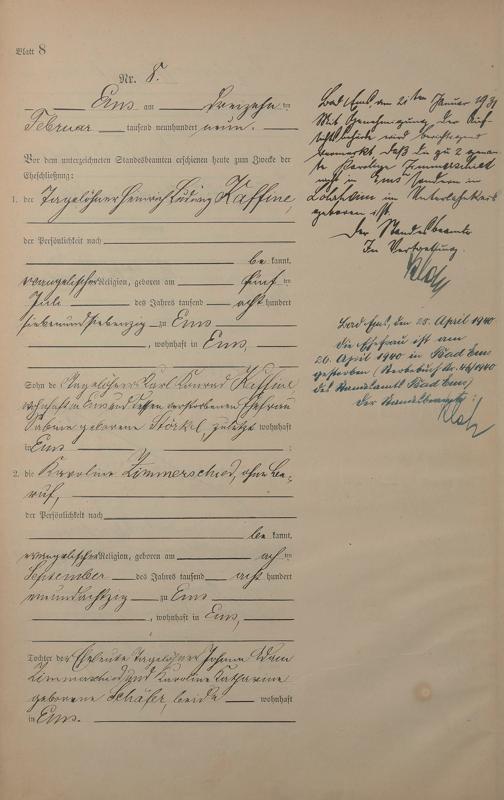 Blatt 8
Nr. 8.
Ems am dreizehn ten
Februar tausend neunhundert neun.
Vor dem unterzeichneten Standesbeamten erschienen heute zum Zwecke der
Eheschließung:
1. der Tagelöhner Heinrich Ludwig Kaffine,
der Persönlichkeit nach
be kannt,
evangelischer Religion, geboren am fünf ten
Juli des Jahres tausend acht hundert
siebenundsiebenzig zu Ems
, wohnhaft in Ems,
Sohn des Tagelöhners Karl Konrad Kiffine
wohnhaft in Ems und dessen verstorbenen Ehefrau
Sabine geborene Störkel, zuletzt wohnhaft
in Ems
2. die Karoline Zimmerschied, ohne Be-
ruf,
der Persönlichkeit nach
be kannt,
evangelischer Religion, geboren am ach ten
September des Jahres tausend acht hundert
neunundachtzig zu Ems
, wohnhaft in Ems,
Tochter der Eheleute Tagelöhner Johann Adam
Zimmerschied und Karoline Katharine
geborene Schäfer, beide wohnhaft
in Ems.
Bad Ems am 21ten Januar 1931
Mit Genehmigung der Auf-
sichtsbehörde wird berichtigend
vermerkt, daß die zu 2 genan-
nte Karoline Zimmerschied
nicht in "Ems" sondern in
im Unterlahnkreis
geboren ist.
Der Standesbeamte
In Vertretung.
Bad Ems, den 25. April 1940
Die Ehefrau ist am
20. April 1940 in Bad Ems
gestorben (Sterbebuch Nr. 46/1940
des Standesamts Bad Ems)
Der Standesbeamte: